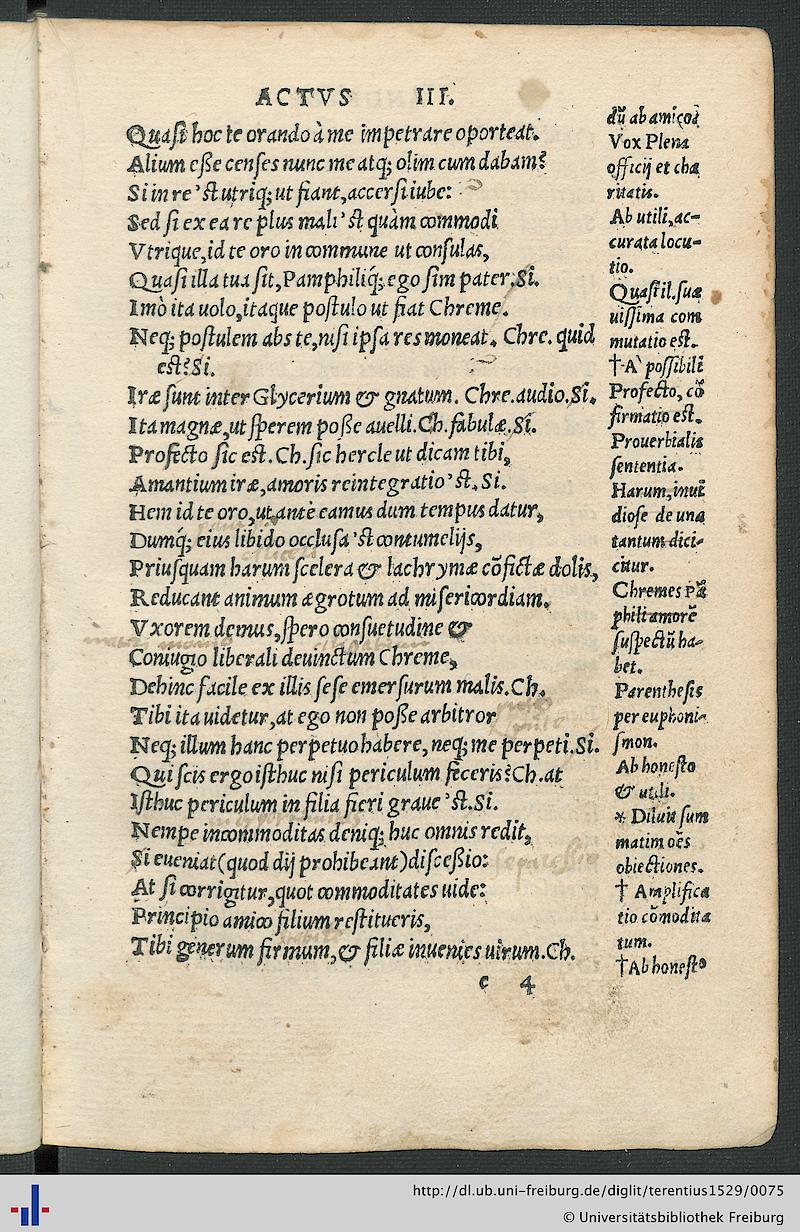 ACTVS III.
Quasi hoc te orando à me impetrare oporteat.
Alium eße censes nunc me atq; olim cum dabam?
Si in re 'st utriq; ut fiant, accersi iube:
Sed si ex ea re plus mali 'st quàm commodi
Vtrique, id te oro in commune ut consulas,
Quasi illa tua sit, Pamphiliq́; ego sim pater. Si.
Imò ita uolo, itaque postulo ut fiat Chreme.
Neq; postulem abs te, nisi ipsa res moneat. Chre. quid
est? Si.
Iræ sunt inter Glycerium & gnatum. Chre. audio. Si.
Ita magnæ, ut sperem poße auelli. Ch. fabulæ. Si.
Profecto sic est. Ch. sic hercle ut dicam tibi,
Amantium iræ, amoris reintegratio 'st. Si.
Hem id te oro, ut antè eamus dum tempus datur,
Dumq́; eius libido occlusa 'st contumelijs,
Priusquam harum scelera & lachrymæ cõfictæ dolis,
Reducant animum ægrotum ad misericordiam.
Vxorem demus, spero consuetudine &
Coniugio liberali deuinctum Chreme,
Dehinc facile ex illis sese emersurum malis. Ch.
Tibi ita uidetur, at ego non poße arbitror
Neq; illum hanc perpetuo habere, neq; me perpeti. Si.
Qui scis ergo isthuc nisi periculum feceris? Ch. at
Isthuc periculum in filia fieri graue 'st. Si.
Nempe incommoditas deniq; huc omnis redit,
Si eueniat (quod dij prohibeant) disceßio:
At si corrigitur, quot commoditates uide:
Principio amico filium restitueris,
Tibi generum firmum, & filiæ inuenies uirum. Ch.
c 4
dũ ab amicoꝝ
Vox Plena
officij et cha
ritatis.
Ab utili, ac-
curata locu-
tio.
Quasi il. suæ
uissima com
mutatio est.
† A' possibili
Profecto, cõ
firmatio est.
Prouerbialis
sententia.
Harum, inui
diose de una
tantum dici-
citur.
Chremes Pã
phili amorẽ
suspectũ ha-
bet.
Parenthesis
per euphoni-
smon.
Ab honesto
& utili.
* Diluit sum
matim oẽs
obiectiones.
† Amplifica
tio cõmodita
tum.
† Ab honesto
http://dl.ub.uni-freiburg.de/diglit/terentius1529/0075
© Universitätsbibliothek Freiburg